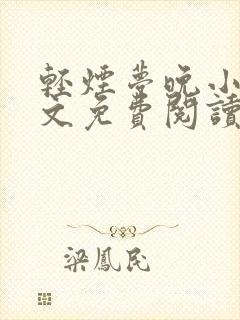 輕煙夢晚小
文免費閱讀
梁鳳民